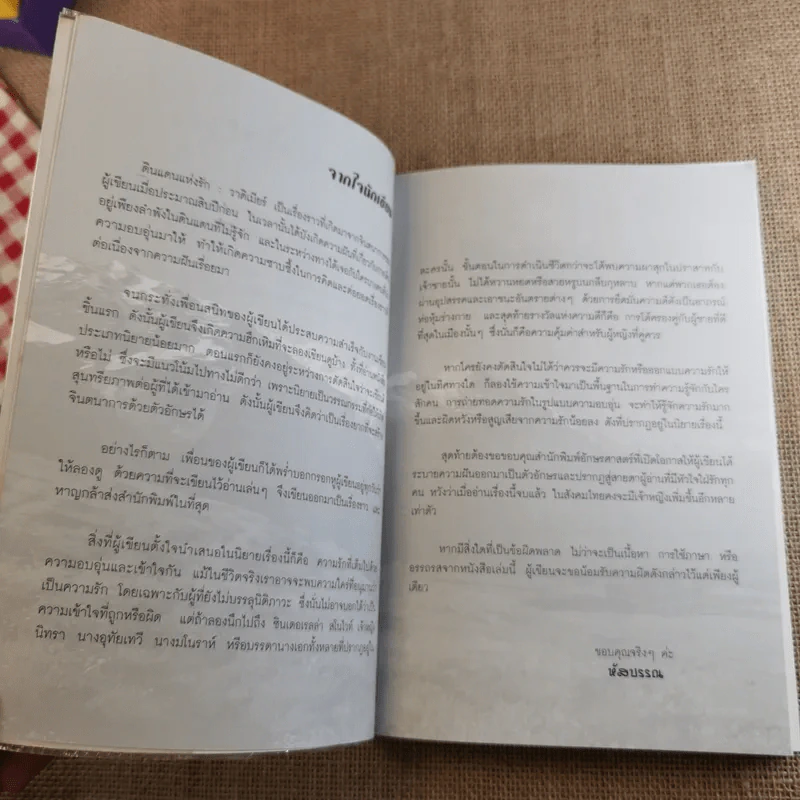 จากใจนักเขียน
ดินแดนแห่งรัก - ราติเมียร์ เป็นเรื่องราวที่เกิดมาจากจินตนาการของ
ผู้เขียนเมื่อประมาณสิบปีก่อน ในเวลานั้นได้บังเกิดความฝันที่เกี่ยวกับการ
อยู่เพียงลำพังในดินแดนที่ไม่รู้จัก และในระหว่างทางได้เจอกับใคร
ความอบอุ่นมาให้ ทำให้เกิดความซาบซึ้งในการคิดและต่อยอดเรื่อง
ต่อเนื่องจากความฝันเรื่อยมา
จนกระทั่งเพื่อนสนิทของผู้เขียนได้ประสบความสำเร็จกับงานเขียน
ชิ้นแรก ดังนั้นผู้เขียนจึงเกิดความฮึกเหิมที่จะลองเขียนดูบ้าง ทั้งที่อ่านหนังสือ
ประเภทนิยายน้อยมาก ตอนแรกก็ยังคงอยู่ระหว่างการตัดสินใจว่าจะเขียนดี
หรือไม่ ซึ่งจะมีแนวโน้มไปทางไม่ดีกว่า เพราะนิยายเป็นวรรณกรรมที่
สุนทรียภาพต่อผู้ที่ได้เข้ามาอ่าน ดังนั้นผู้เขียนจึงคิดว่าเป็นเรื่องยากที่จะ
จินตนาการด้วยตัวอักษรได้
อย่างไรก็ตาม เพื่อนของผู้เขียนก็ได้พร่ำบอกกรอกหูผู้เขียนอยู่ทุกวัน
ให้ลองดู ด้วยความที่จะเขียนไว้อ่านเล่นๆ จึงเขียนออกมาเป็นเรื่องราว และ
หาญกล้าส่งสำนักพิมพ์ในที่สุด
สิ่งที่ผู้เขียนตั้งใจนำเสนอในนิยายเรื่องนี้ก็คือ ความรักที่เต็มไปด้วย
ความอบอุ่นและเข้าใจกัน แม้ในชีวิตจริงเราอาจจะพบความใคร่ที่
เป็นความรัก โดยเฉพาะกับผู้ที่ยังไม่บรรลุนิติภาวะ ซึ่งนั่นไม่อาจบอกได้ว่าเป็น
ความเข้าใจที่ถูกหรือผิด แต่ถ้าลองนึกไปถึง ซินเดอเรลล่า สโนไวต์ เจ้าหญิง
นิทรา นางอุทัยเทวี นางมโนราห์ หรือบรรดานางเอกทั้งหลายที่ปรากฏอยู่ใน
ละครนั้น ขั้นตอนในการดำเนินชีวิตกว่าจะได้พบความผาสุกในปราสาทกับ
เจ้าชายนั้น ไม่ได้หวานหยดหรือสวยหรูบนกลีบกุหลาบ หากแต่พวกเธอต้อง
ผ่านอุปสรรคและเอาชนะอันตรายต่างๆ ด้วยการยึดมั่นความดีดังเป็นอาภรณ์
ห่อหุ้มร่างกาย และสุดท้ายรางวัลแห่งความดีก็คือ การได้ครองคู่กับผู้ชายที่ดี
ที่สุดในเมืองนั้นๆ ซึ่งนั่นก็คือความคุ้มค่าสำหรับผู้หญิงที่คู่ควร
หากใครยังคงตัดสินใจไม่ได้ว่าควรจะมีความรักหรือออกแบบความรักให้
อยู่ในทิศทางใด ก็ลองใช้ความเข้าใจมาเป็นพื้นฐานในการทำความรู้จักกับใคร
สักคน การถ่ายทอดความรักในรูปแบบความอบอุ่น จะทำให้รู้จักความรักมาก
ขึ้นและผิดหวังหรือสูญเสียจากความรักน้อยลง ดังที่ปรากฏอยู่ในนิยายเรื่องนี้
สุดท้ายต้องขอขอบคุณสำนักพิมพ์อักษรศาสตร์ที่เปิดโอกาสให้ผู้เขียนได้
ระบายความฝันออกมาเป็นตัวอักษรและปรากฏสู่สายตาผู้อ่านที่มีหัวใจไม่รักทุก
คน หวังว่าเมื่ออ่านเรื่องนี้จบแล้ว ในสังคมไทยคงจะมีเจ้าหญิงเพิ่มขึ้นอีกหลาย
เท่าตัว
หากมีสิ่งใดที่เป็นข้อผิดพลาด ไม่ว่าจะเป็นเนื้อหา การใช้ภาษา หรือ
อรรถรสจากหนังสือเล่มนี้ ผู้เขียนจะขอน้อมรับความผิดดังกล่าวไว้แต่เพียงผู้
เดียว
ขอบคุณจริงๆ ค่ะ
หัสบรรณ